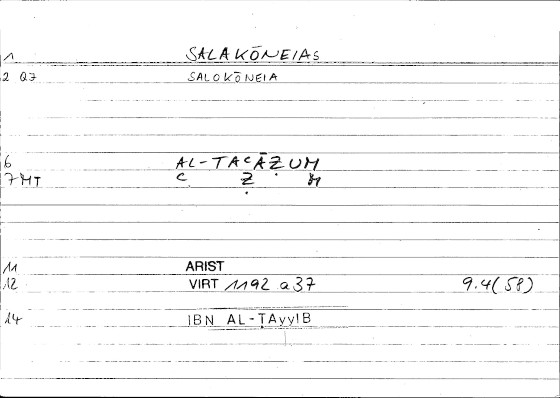 1 SALAKŌNEIAS
2 Q7 SALOKŌNEIA
6 AL-TAʿĀẒUM
7 MT ʿ Ẓ M
11 ARIST
12 VIRT 1192 a37 9.4(58)
14 IBN AL-ṬAyyIB